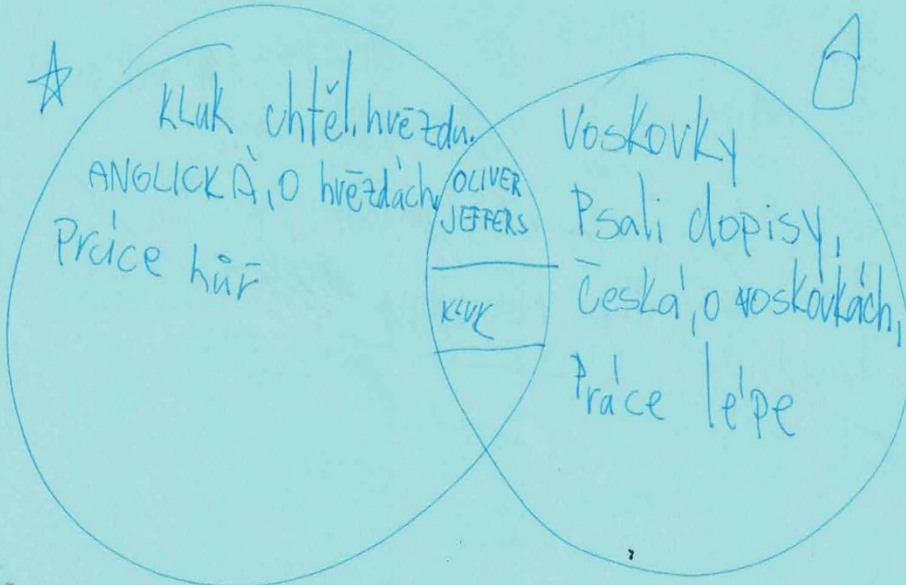 Kluk chtěl, hvězdu.
ANGLICKÁ, O hvězdách,
Práce hůř
OLIVER
JEFFERS
KLUK
Voskovky
Psali dopisy,
Česká, o voskovkách,
Práce lépe